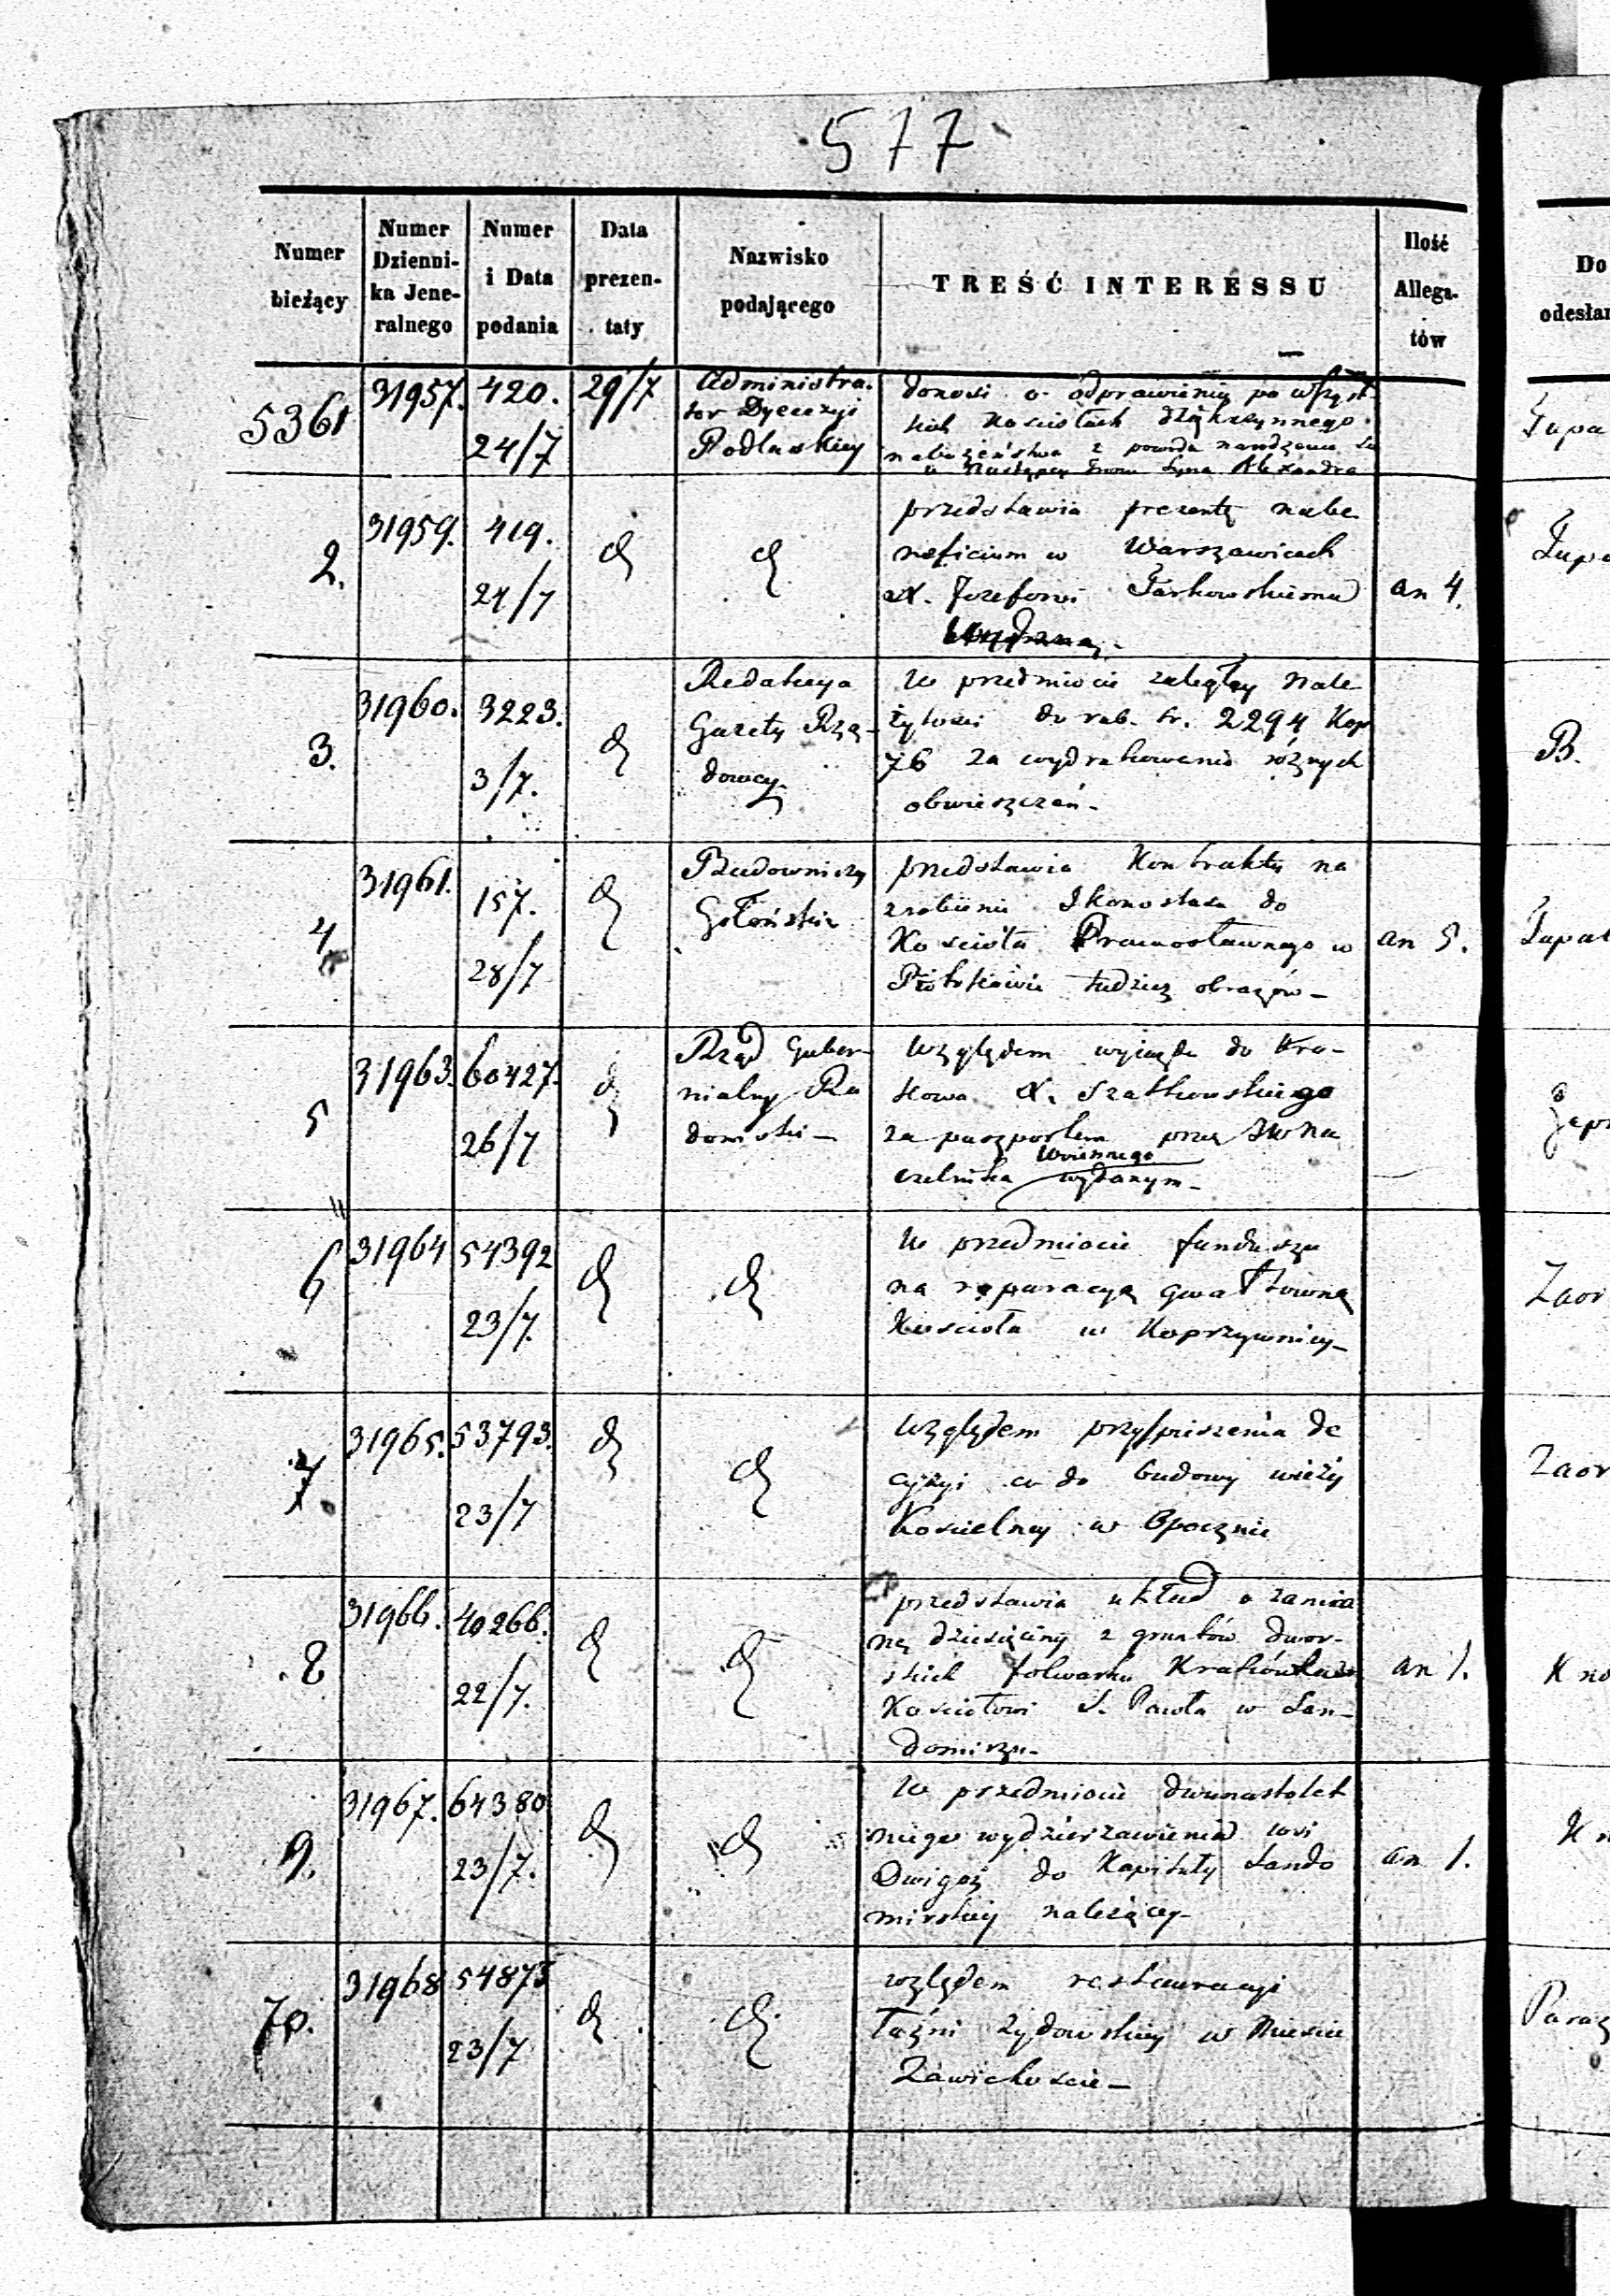 577
Numer bieżący
Numer Dzienni- ka Jene- ralnego
Numer i Data podania
Data prezen- taty
Nazwisko podającego
TREŚĆ INTERESSU
Ilość Allega- tów
Do
odesłan
5361 31957. 420. 24/7 29/7
Administra-
tor Dyecezyi
Podlaskiey
donosi o odprawieniu po wszyst-
kich Kosciołach dziękczynnego
nabożeństwa z powodu narodzenia
Następcy Tronu Syna Alexandra
Zupa
2. 31959. 419. 24/7
przedstawia prezentę na be
neficium w Warszawicach
X. Jozefowi Tarkowskiemu
an 4.
3. 31960. 3223. 3/7.
Redakcya
Gazety Rzą-
dowey
W przedmiocie zaległey nale
żytosci do rub. sr. 2294 Kop
76 za wydrukowanie różnych
obwieszczeń-
B.
4 31961. 157. 28/7
Budowniczy
przedstawia Kontrakty na
zrobienie Ikonostasu do
Kościoła Prawosławnego w
Piotrkowie tudzież obrazów-
an 5.
5 31963. 60427. 26/7
Rząd Guber-
nialny Ra
domski-
Względem wyjazdu do Kra-
kowa X. Szatkowskiego
za paszportem przez JW Na
Woiennego
czelnika wydanym-
6 31964 54392 23/7.
W przedmiocie funduszu
na reparacyą gwałtowną
Kościoła w Koprzywnicy-
Zaor
7. 31965. 53793. 23/7
Względem przyspieszenia de
cyzyi co do budowy wieży
Kościelney w Opocznie
Zaor
8 31966. 40266. 22/7.
przedstawia układ o zamia
nę dziesięciny z gruntów dwor-
skich folwarku Krakówka
Kościołowi S. Pawła w San-
domirzu-
an 1.
Kno
9. 31967. 64380 23/7.
W przedmiocie dwunastolet
niego wydzierzawienia wsi
Dwigoz do Kapituły Sando
mirskiey należącey-
an 1.
K n
70. 31968 54875 23/7
względem restauracyi
Łaźni Żydowskiey w Miescie
Zawichoscie-